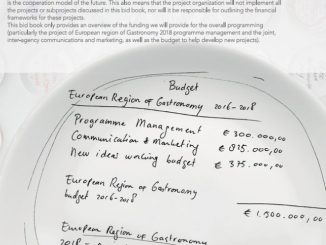 is the cooperation model of the future. This also means that the project organization will not implement all
the projects or subprojects discussed in this bid book, nor will it be responsible for outlining the financial
frameworks for these projects.
This bid book only provides an overview of the funding we will provide for the overall programming
(particularly the project of European region of Gastronomy 2018 programme management and the joint,
inter-agency communications and marketing, as well as the budget to help develop new projects).
Budget
European Region of Gastronomy 2016-2018
Programme Management € 300.000,00
Communication & Marketing € 825.000,00
New ideas working budget € 375.000,00
European Region of Gastronomy
budget 2016-2018
€ 1.500.000,00
European Region of Gastronomy
2018 -